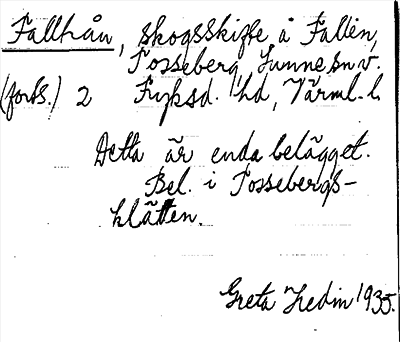 Fallhån, skogsskifte å Fallen,
Tosseberg, Sunne sn v.
(forts.) 2 Fryksd. hd, Värml. l.
Detta är enda belägget.
Bel. i Tossebergs-
klätten.
Greta Hedin 1935.